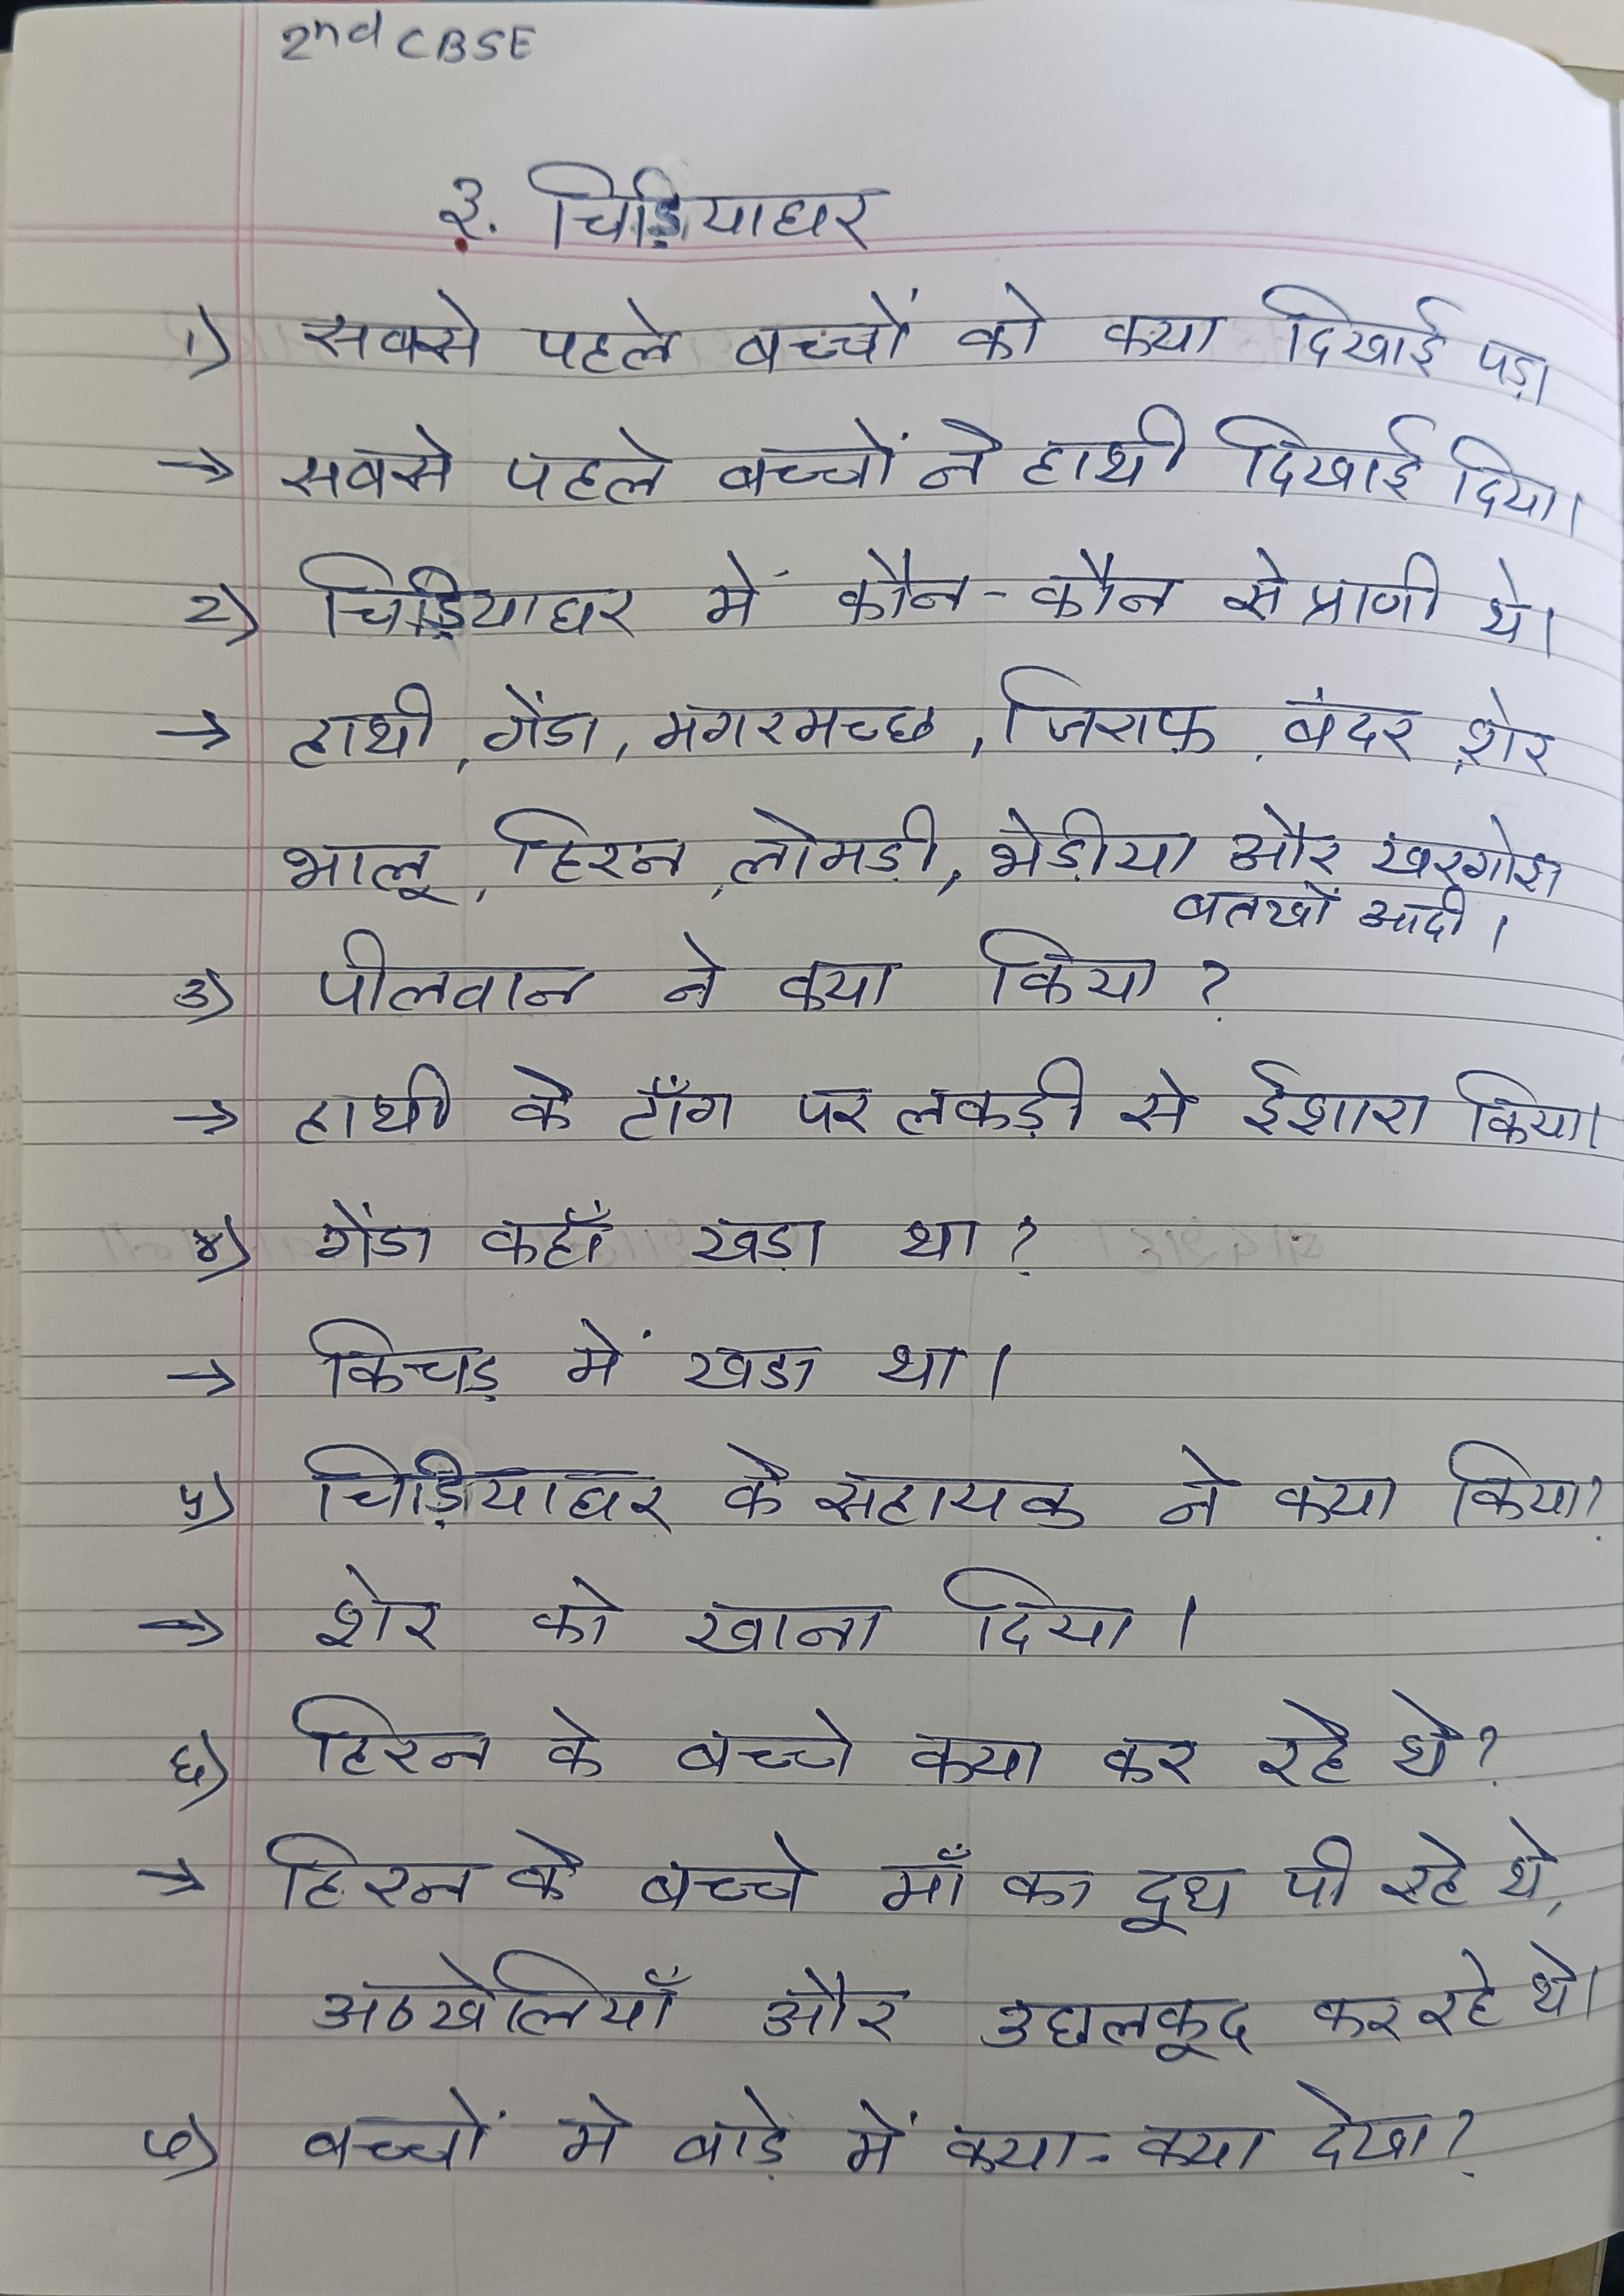 2nd CBSE
३. चिड़ियाघर
१) सबसे पहले बच्चों को क्या दिखाई पड़ा
→ सबसे पहले बच्चों ने हाथी दिखाई दिया।
२) चिड़ियाघर में कौन-कौन से प्राणी थे।
→ हाथी, गेंडा, मगरमच्छ, जिराफ़, बंदर, शेर
भालू, हिरन, लोमड़ी, भेड़ीया और खरगोश
बतखों आदी।
३) पीलवान ने क्या किया?
→ हाथी के टाँग पर लकड़ी से ईशारा किया।
४) गेंडा कहाँ खड़ा था?
→ किचड़ में खडा था।
५) चिड़ियाघर के सहायक ने क्या किया?
→ शेर को खाना दिया।
६) हिरन के बच्चे क्या कर रहे थे?
→ हिरन के बच्चे माँ का दूध पी रहे थे,
अठखेलियाँ और उछलकूद कर रहे थे।
७) बच्चों मे बाड़े में क्या-क्या देखा?